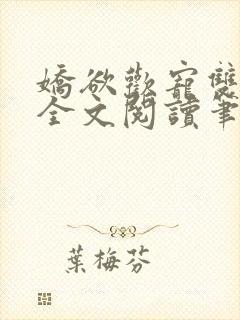 嬌欲歡寵雙
全文閱讀筆
葉梅芬